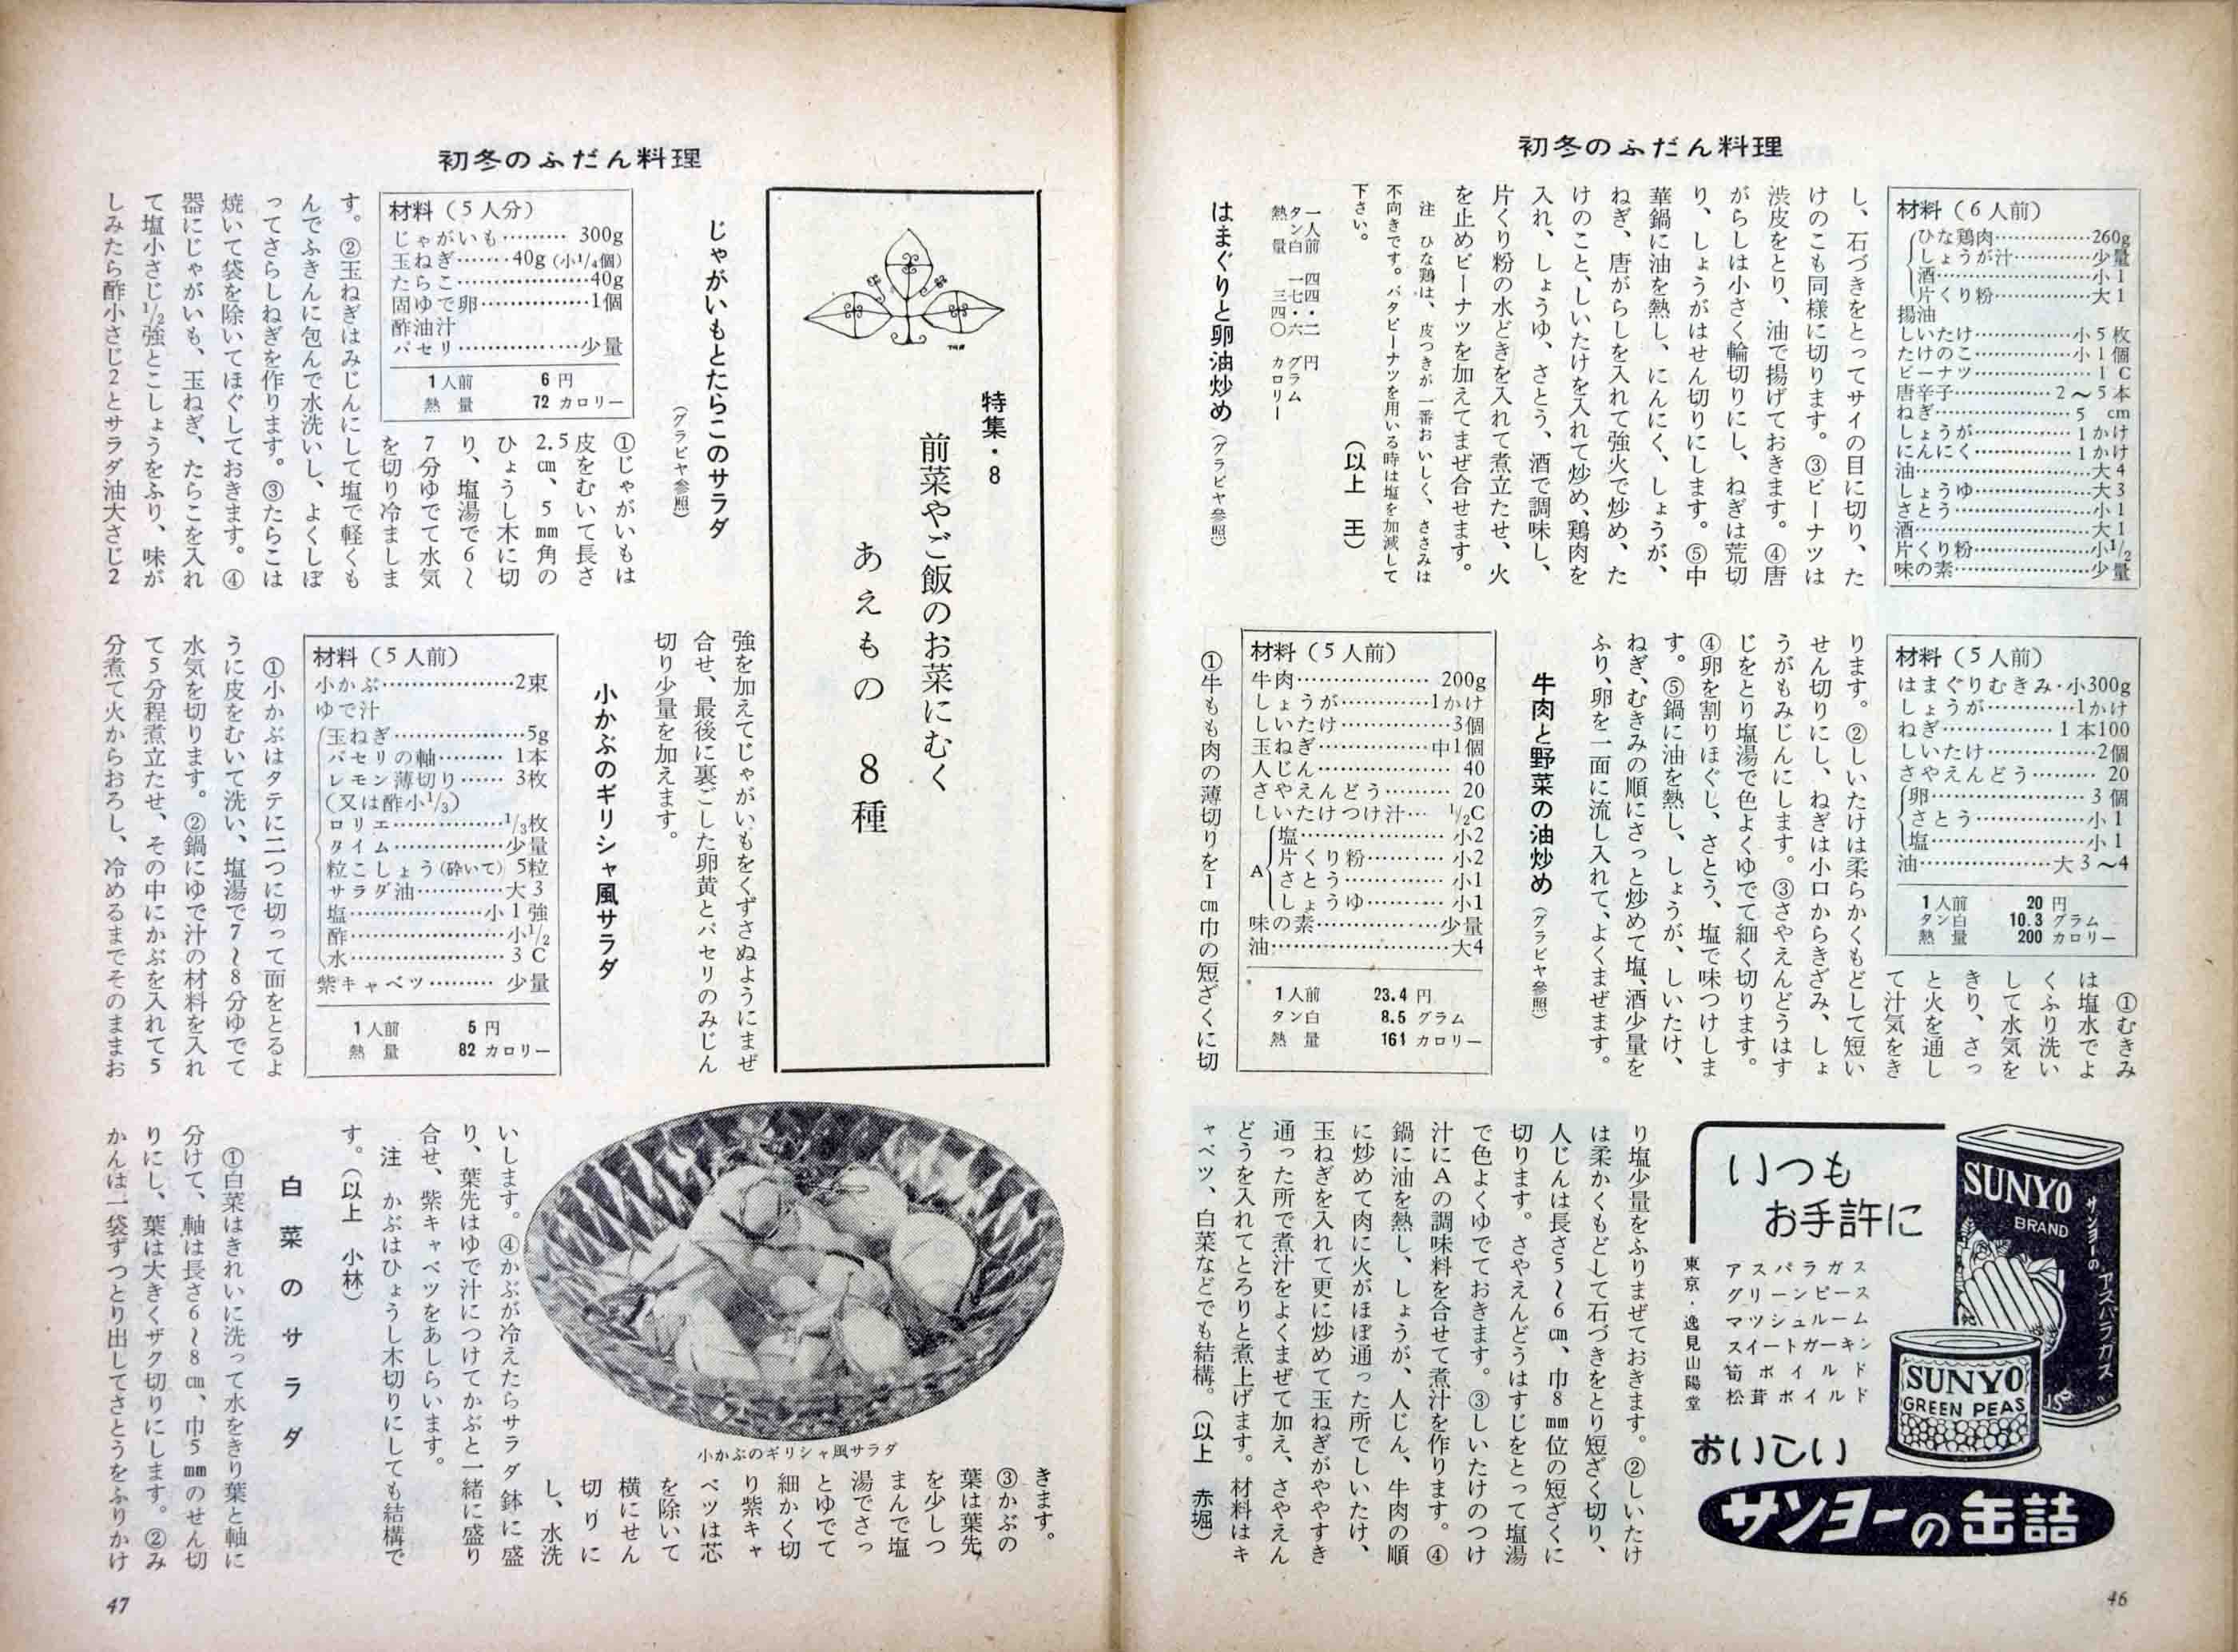 初冬のふだん料理
材料（6人前）
ひな鶏肉……………260g
しょうが汁…………少量
酒……………………小1
片くり粉……………大1
揚油
しいたけ……………小5枚
たけのこ……………小1個
ピーナツ……………1C
唐辛子………………2〜5本
ねぎ…………………5cm
しょうが……………1かけ
にんにく……………1かけ
油……………………大4
しょうゆ……………大3
さとう………………小1
酒……………………大1
片くり粉……………小1/2
味の素………………少量
し、石づきをとってサイの目に切り、た
けのこも同様に切ります。③ピーナツは
渋皮をとり、油で揚げておきます。④唐
がらしは小さく輪切りにし、ねぎは荒切
り、しょうがはせん切りにします。⑤中
華鍋に油を熱し、にんにく、しょうが、
ねぎ、唐がらしを入れて強火で炒め、た
けのこと、しいたけを入れて炒め、鶏肉を
入れ、しょうゆ、さとう、酒で調味し、
片くり粉の水どきを入れて煮立たせ、火
を止めピーナツを加えてまぜ合せます。
注　ひな鶏は、皮つきが一番おいしく、ささみは
不向きです。バタピーナツを用いる時は塩を加減して
下さい。
（以上　王）
一人前　四四・二　円
タン白　一七・六　グラム
熱量　三四〇　カロリー
はまぐりと卵油炒め（グラビヤ参照）
材料（5人前）
はまぐりむきみ・小300g
しょうが……………1かけ
ねぎ……………1本100
しいたけ……………2個
さやえんどう………20
卵……………………3個
さとう………………小1
塩……………………小1
油………………大3〜4
1人前　20 円
タン白　10.3 グラム
熱量　200 カロリー
①むきみ
は塩水でよ
くふり洗い
して水気を
きり、さっ
と火を通し
て汁気をき
ります。②しいたけは柔らかくもどして短い
せん切りにし、ねぎは小口からきざみ、しょ
うがもみじんにします。③さやえんどうはす
じをとり塩湯で色よくゆでて細く切ります。
④卵を割りほぐし、さとう、塩で味つけしま
す。⑤鍋に油を熱し、しょうが、しいたけ、
ねぎ、むきみの順にさっと炒めて塩、酒少量を
ふり、卵を一面に流し入れて、よくまぜます。
牛肉と野菜の油炒め（グラビヤ参照）
材料（5人前）
牛肉……………… 200g
しょうが…………1かけ
しいたけ……………3個
玉ねぎ……………中1個
人じん……………… 40
さやえんどう……… 20
しいたけつけ汁… 1/2C
A
塩………………… 小2
片くり粉………… 小2
さとう…………… 小1
しょうゆ………… 小1
味の素……………少量
油…………………大4
1人前　23.4 円
タン白　8.5 グラム
熱量　161 カロリー
①牛もも肉の薄切りを1cm巾の短ざくに切
り塩少量をふりまぜておきます。②しいたけ
は柔かくもどして石づきをとり短ざく切り、
人じんは長さ5〜6cm、巾8mm位の短ざくに
切ります。さやえんどうはすじをとって塩湯
で色よくゆでておきます。③しいたけのつけ
汁にAの調味料を合せて煮汁を作ります。④
鍋に油を熱し、しょうが、人じん、牛肉の順
に炒めて肉に火がほぼ通った所でしいたけ、
玉ねぎを入れて更に炒めて玉ねぎがややすき
通った所で煮汁をよくまぜて加え、さやえん
どうを入れてとろりと煮上げます。材料はキ
ャベツ、白菜などでも結構。（以上　赤堀）
いつも
お手許に
SUNYO
BRAND
サンヨーの
アスパラガス
SUNYO
GREEN PEAS
アスパラガス
グリーンピース
マツシュルーム
スイートガーキン
筍ボイルド
松茸ボイルド
東京・逸見山陽堂
おいしい
サンヨーの缶詰
46
初冬のふだん料理
特集・8
前菜やご飯のお菜にむく
あえもの　8種
じゃがいもとたらこのサラダ
（グラビヤ参照）
材料（5人分）
じゃがいも……… 300g
玉ねぎ……・40g（小1/4個）
たらこ………………40g
固ゆで卵……………1個
酢油汁
パセリ……………少量
1人前　6 円
熱量　72 カロリー
①じゃがいもは
皮をむいて長さ
2.5cm、5mm角の
ひょうし木に切
り、塩湯で6〜
7分ゆでて水気
を切り冷まします。
②玉ねぎはみじんにして塩で軽くも
んでふきんに包んで水洗いし、よくしぼ
ってさらしねぎを作ります。③たらこは
焼いて袋を除いてほぐしておきます。④
器にじゃがいも、玉ねぎ、たらこを入れ
て塩小さじ1/2強とこしょうをふり、味が
しみたら酢小さじ2とサラダ油大さじ2
強を加えてじゃがいもをくずさぬようにまぜ
合せ、最後に裏ごした卵黄とパセリのみじん
切り少量を加えます。
小かぶのギリシャ風サラダ
材料（5人前）
小かぶ………………2束
ゆで汁
玉ねぎ………………5g
パセリの軸……… 1本
レモン薄切り…… 3枚
（又は酢小1/3）
ロリエ……………1/3枚
タイム……………少量
粒こしょう（砕いて）5粒
サラダ油…………大3
塩………………小1強
酢…………………小1/2
水………………… 3C
紫キャベツ……… 少量
1人前　5 円
熱量　82 カロリー
①小かぶはタテに二つに切って面をとるよ
うに皮をむいて洗い、塩湯で7〜8分ゆでて
水気を切ります。②鍋にゆで汁の材料を入れ
て5分程煮立たせ、その中にかぶを入れて5
分煮て火からおろし、冷めるまでそのままお
きます。
③かぶの
葉は葉先
を少しつ
まんで塩
湯でさっ
とゆでて
細かく切
り紫キャ
ベツは芯
を除いて
横にせん
切りに
し、水洗
いします。④かぶが冷えたらサラダ鉢に盛
り、葉先はゆで汁につけてかぶと一緒に盛り
合せ、紫キャベツをあしらいます。
注　かぶはひょうし木切りにしても結構で
す。（以上　小林）
小かぶのギリシャ風サラダ
白菜のサラダ
①白菜はきれいに洗って水をきり葉と軸に
分けて、軸は長さ6〜8cm、巾5mmのせん切
りにし、葉は大きくザク切りにします。②み
かんは一袋ずつとり出してさとうをふりかけ
47